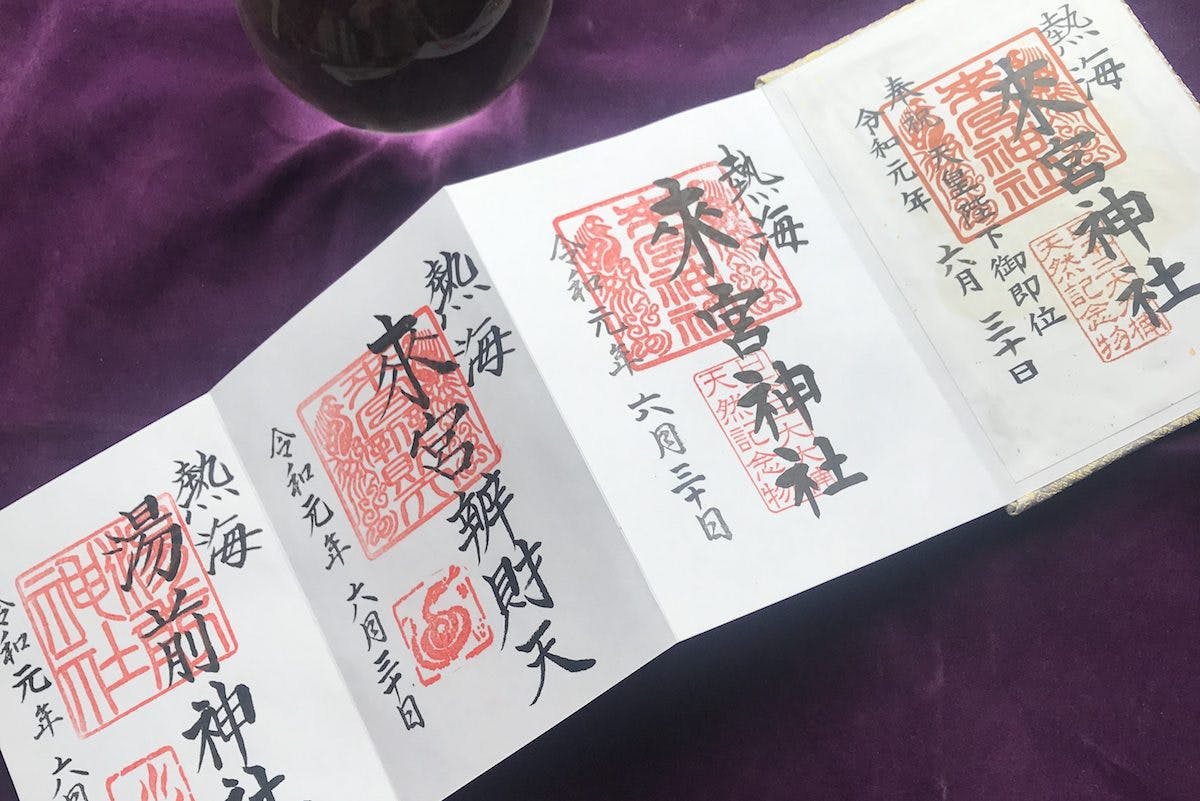 熱海
來宮神社
奉祝 天皇陛下御即位
令和元年 六月 三十日
來宮神社
天然記念物
熱海
來宮神社
令和元年 六月三十日
來宮神社
天然記念物
熱海
來宮辨財天
令和元年 六月三十日
熱海
湯前神社
令和元年 六
湯前神社